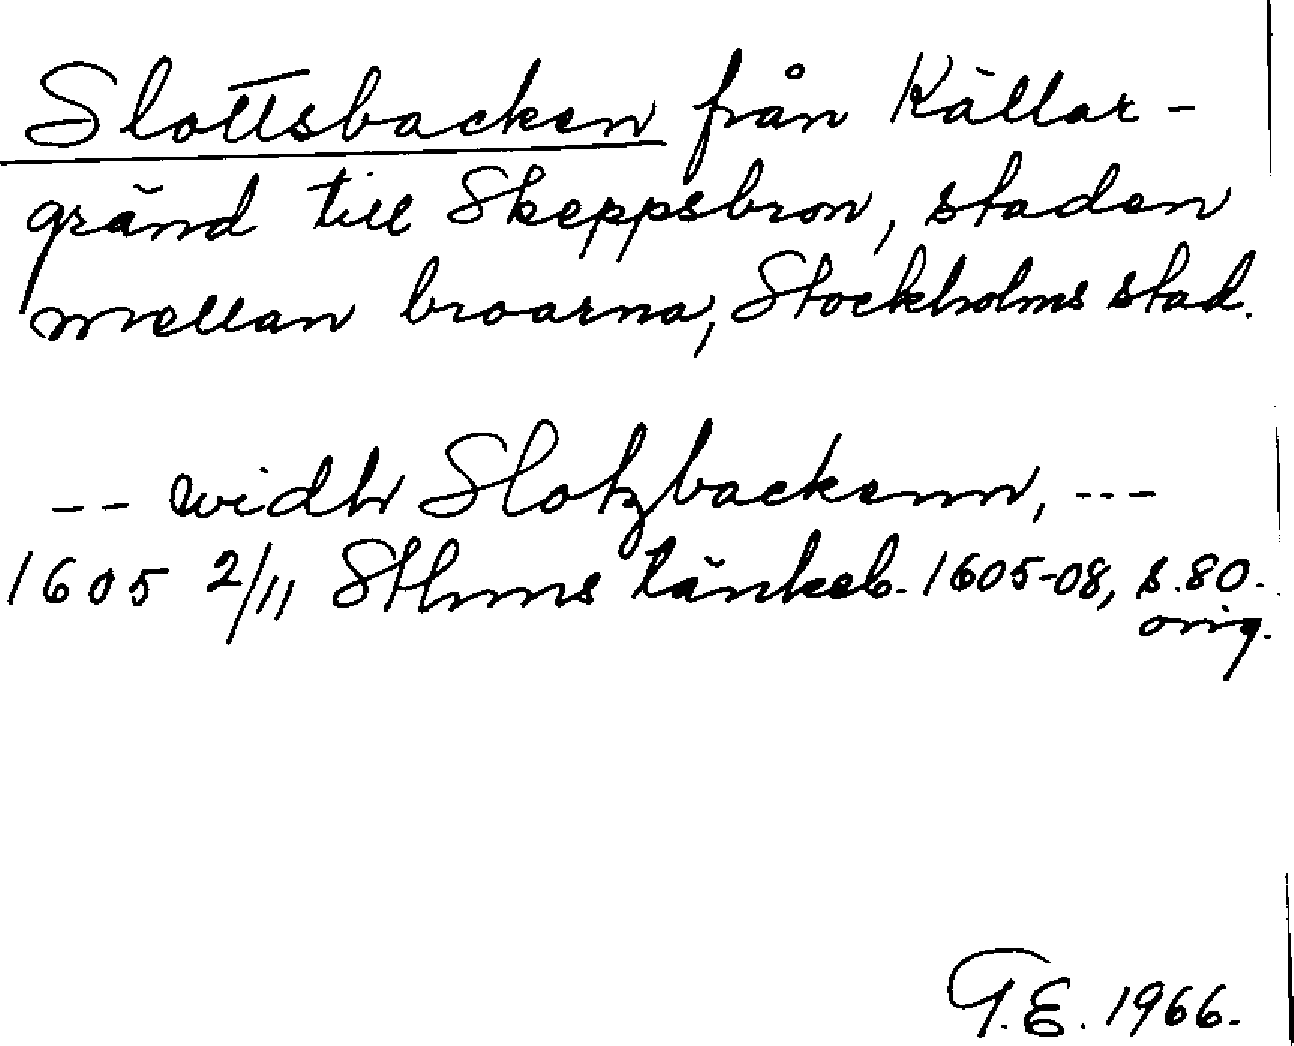 Slottsbacken från Källar-
gränd till Skeppsbron, staden
mellan broarna, Stockholms stad.
-- widh Slotzbackenn, ---
1605 2/11 Sthms tänkeb. 1605-08, s. 80.
orig.
T.E. 1966.